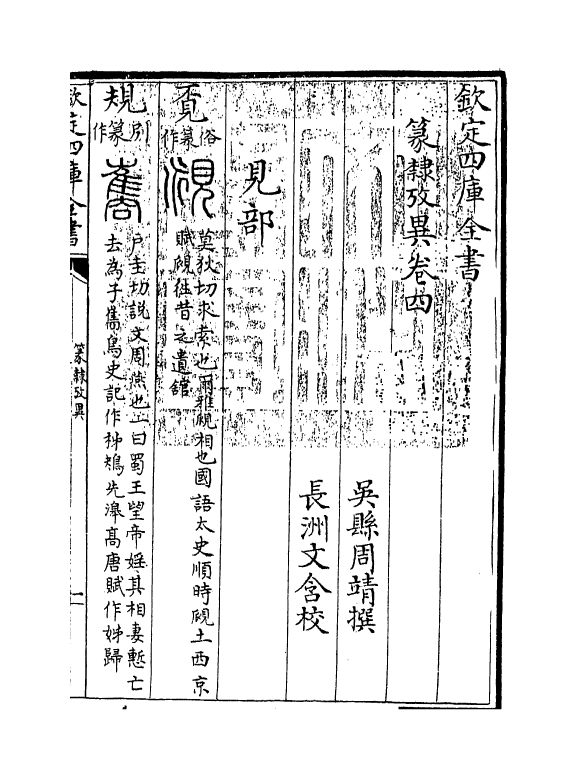 欽定四庫全書
篆隸攷異卷四
吳縣周靖撰
長洲文含校
見部
覓俗篆作 莫狄切求索也爾雅覛相也國語太史順時覛土西京
賦覛往昔之遺館
規刷篆作 巂 户圭切說文周燕也一曰蜀王望帝婬其相妻慙亡
去為子巂鳥史記作秭鳺先滜髙唐賦作姊歸
欽定四庫全書
篆隸攷異
一